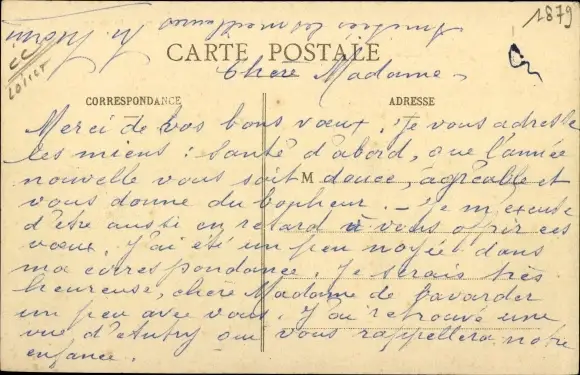 1879
CC
Loiret
CARTE POSTALE
Chère Madame
CORRESPONDANCE
ADRESSE
M
Merci de vos bons vœux. Je vous adresse
les miens : Santé d'abord, que l'année
nouvelle vous soit douce, agréable et
vous donne du bonheur. - Je m'excuse
d'être aussi en retard à vous offrir ces
vœux. J'ai été un peu noyée dans
ma correspondance. Je serais très
heureuse, chère Madame de bavarder
un peu avec vous. J'ai retrouvé une
vue d'Autry qui vous rappellera notre
enfance.